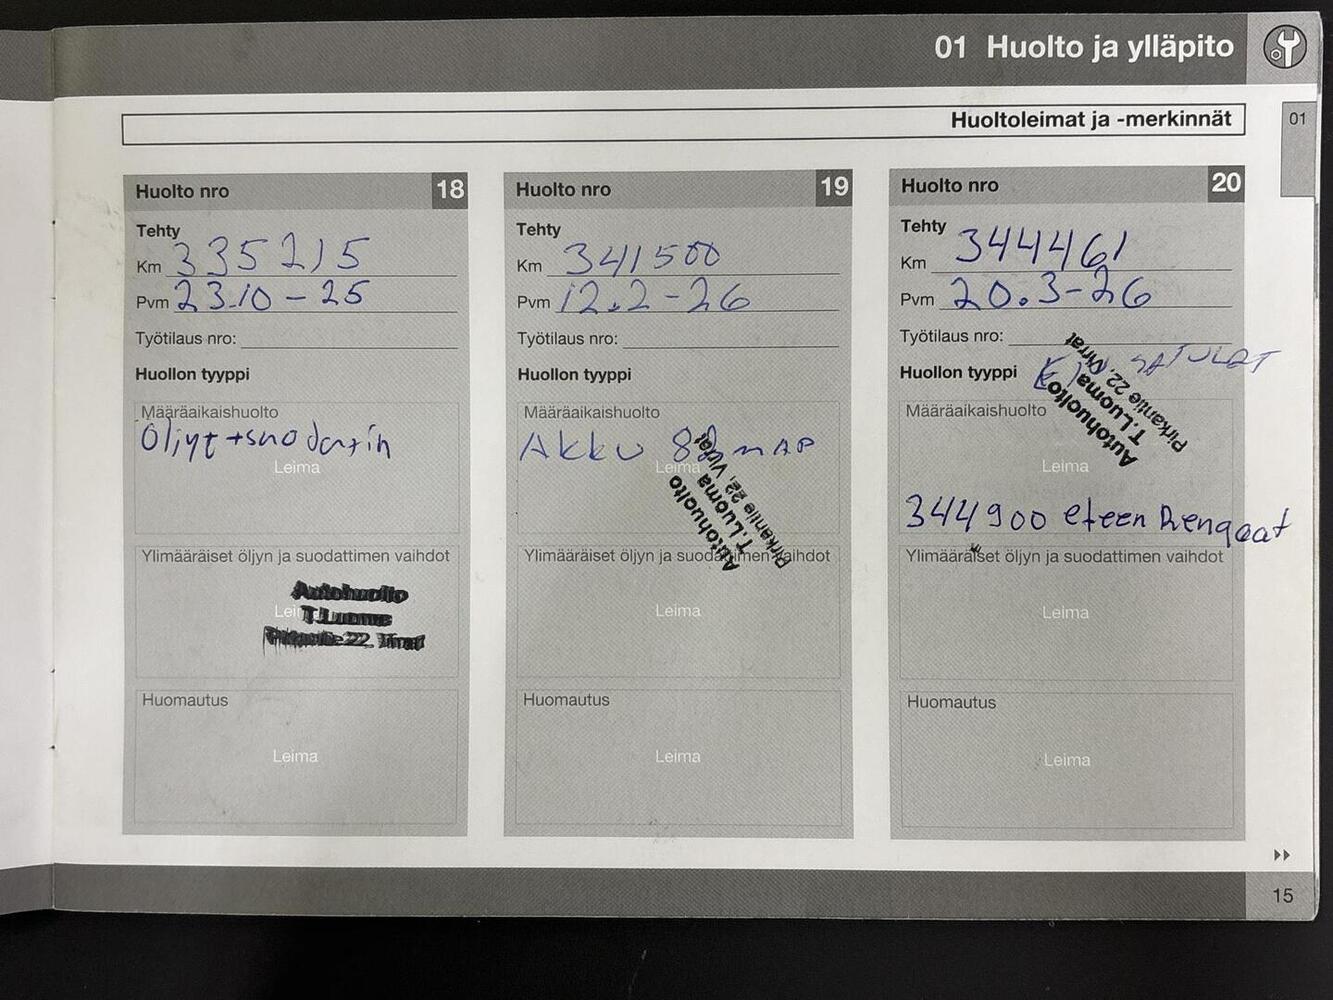 01 Huolto ja ylläpito
Huoltoleimat ja -merkinnät
01
Huolto nro 18
Tehty
Km 335215
Pvm 23.10-25
Työtilaus nro:
Huollon tyyppi
Määräaikaishuolto
Öljyt + suodatin
Leima
Ylimääräiset öljyn ja suodattimen vaihdot
Autohuolto
Leima
T.Luoma
Pirkantie 22, Virrat
Huomautus
Leima
Huolto nro 19
Tehty
Km 341500
Pvm 12.2-26
Työtilaus nro:
Huollon tyyppi
Määräaikaishuolto
Akku
Leima
Autohuolto
T.Luoma
Pirkantie 22, Virrat
Ylimääräiset öljyn ja suodattimen vaihdot
Leima
Huomautus
Leima
Huolto nro 20
Tehty
Km 344461
Pvm 20.3-26
Työtilaus nro:
Huollon tyyppi
Autohuolto
T.Luoma
Pirkantie 22, Virrat
Määräaikaishuolto
Leima
344900 eteen Renqaat
Ylimääräiset öljyn ja suodattimen vaihdot
Leima
Huomautus
Leima
15